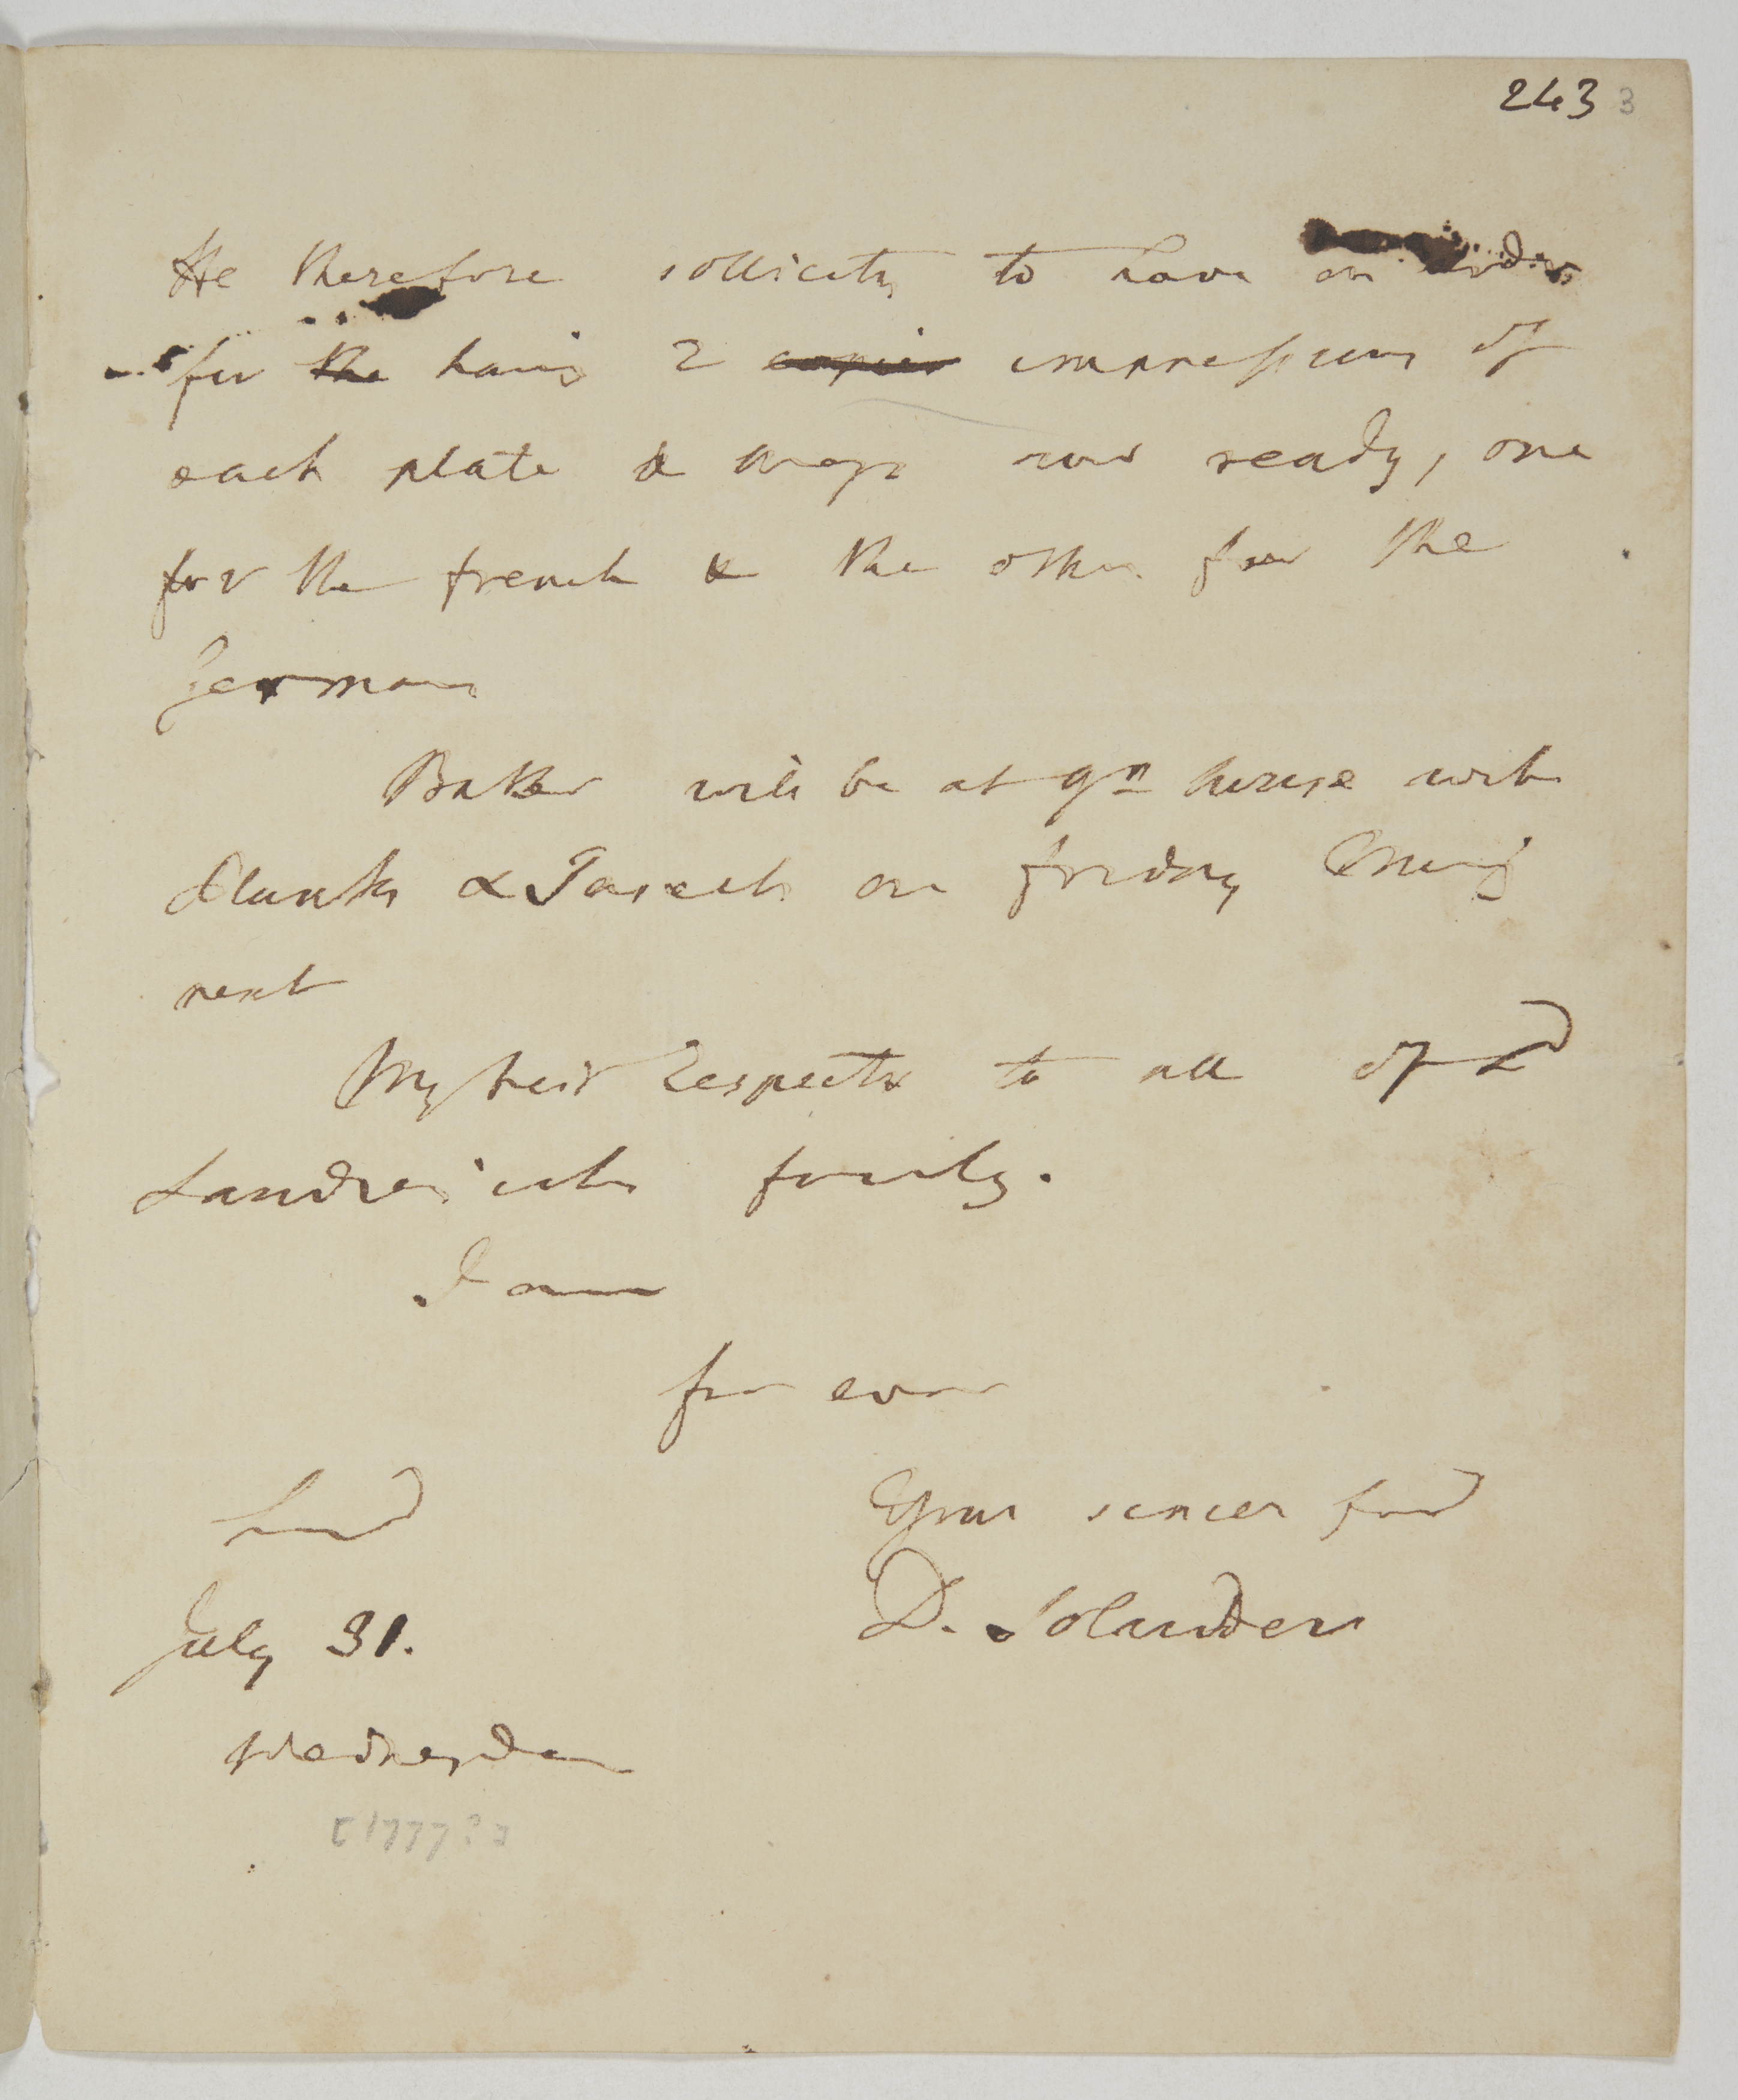 243 3
He therefore sollicits to have an order
for the having 2 copies impressions of
each plate & map now ready, one
for the french & the other for the
German
Baker will be at yr house with
& on friday Evening
next
My best Respects to all of Ld
Sandwich's family.
I am
for ever
Lond
Your sincer frd
July 31.
D. Solander
Wednesday
[1777?]